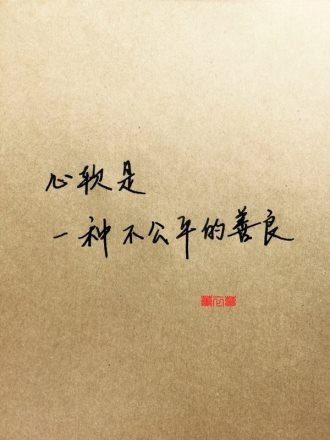 心软是
一种不公平的善良